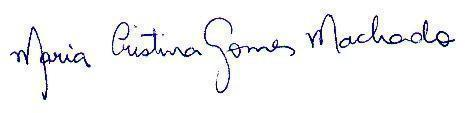 Maria Cristina Gomes Machado